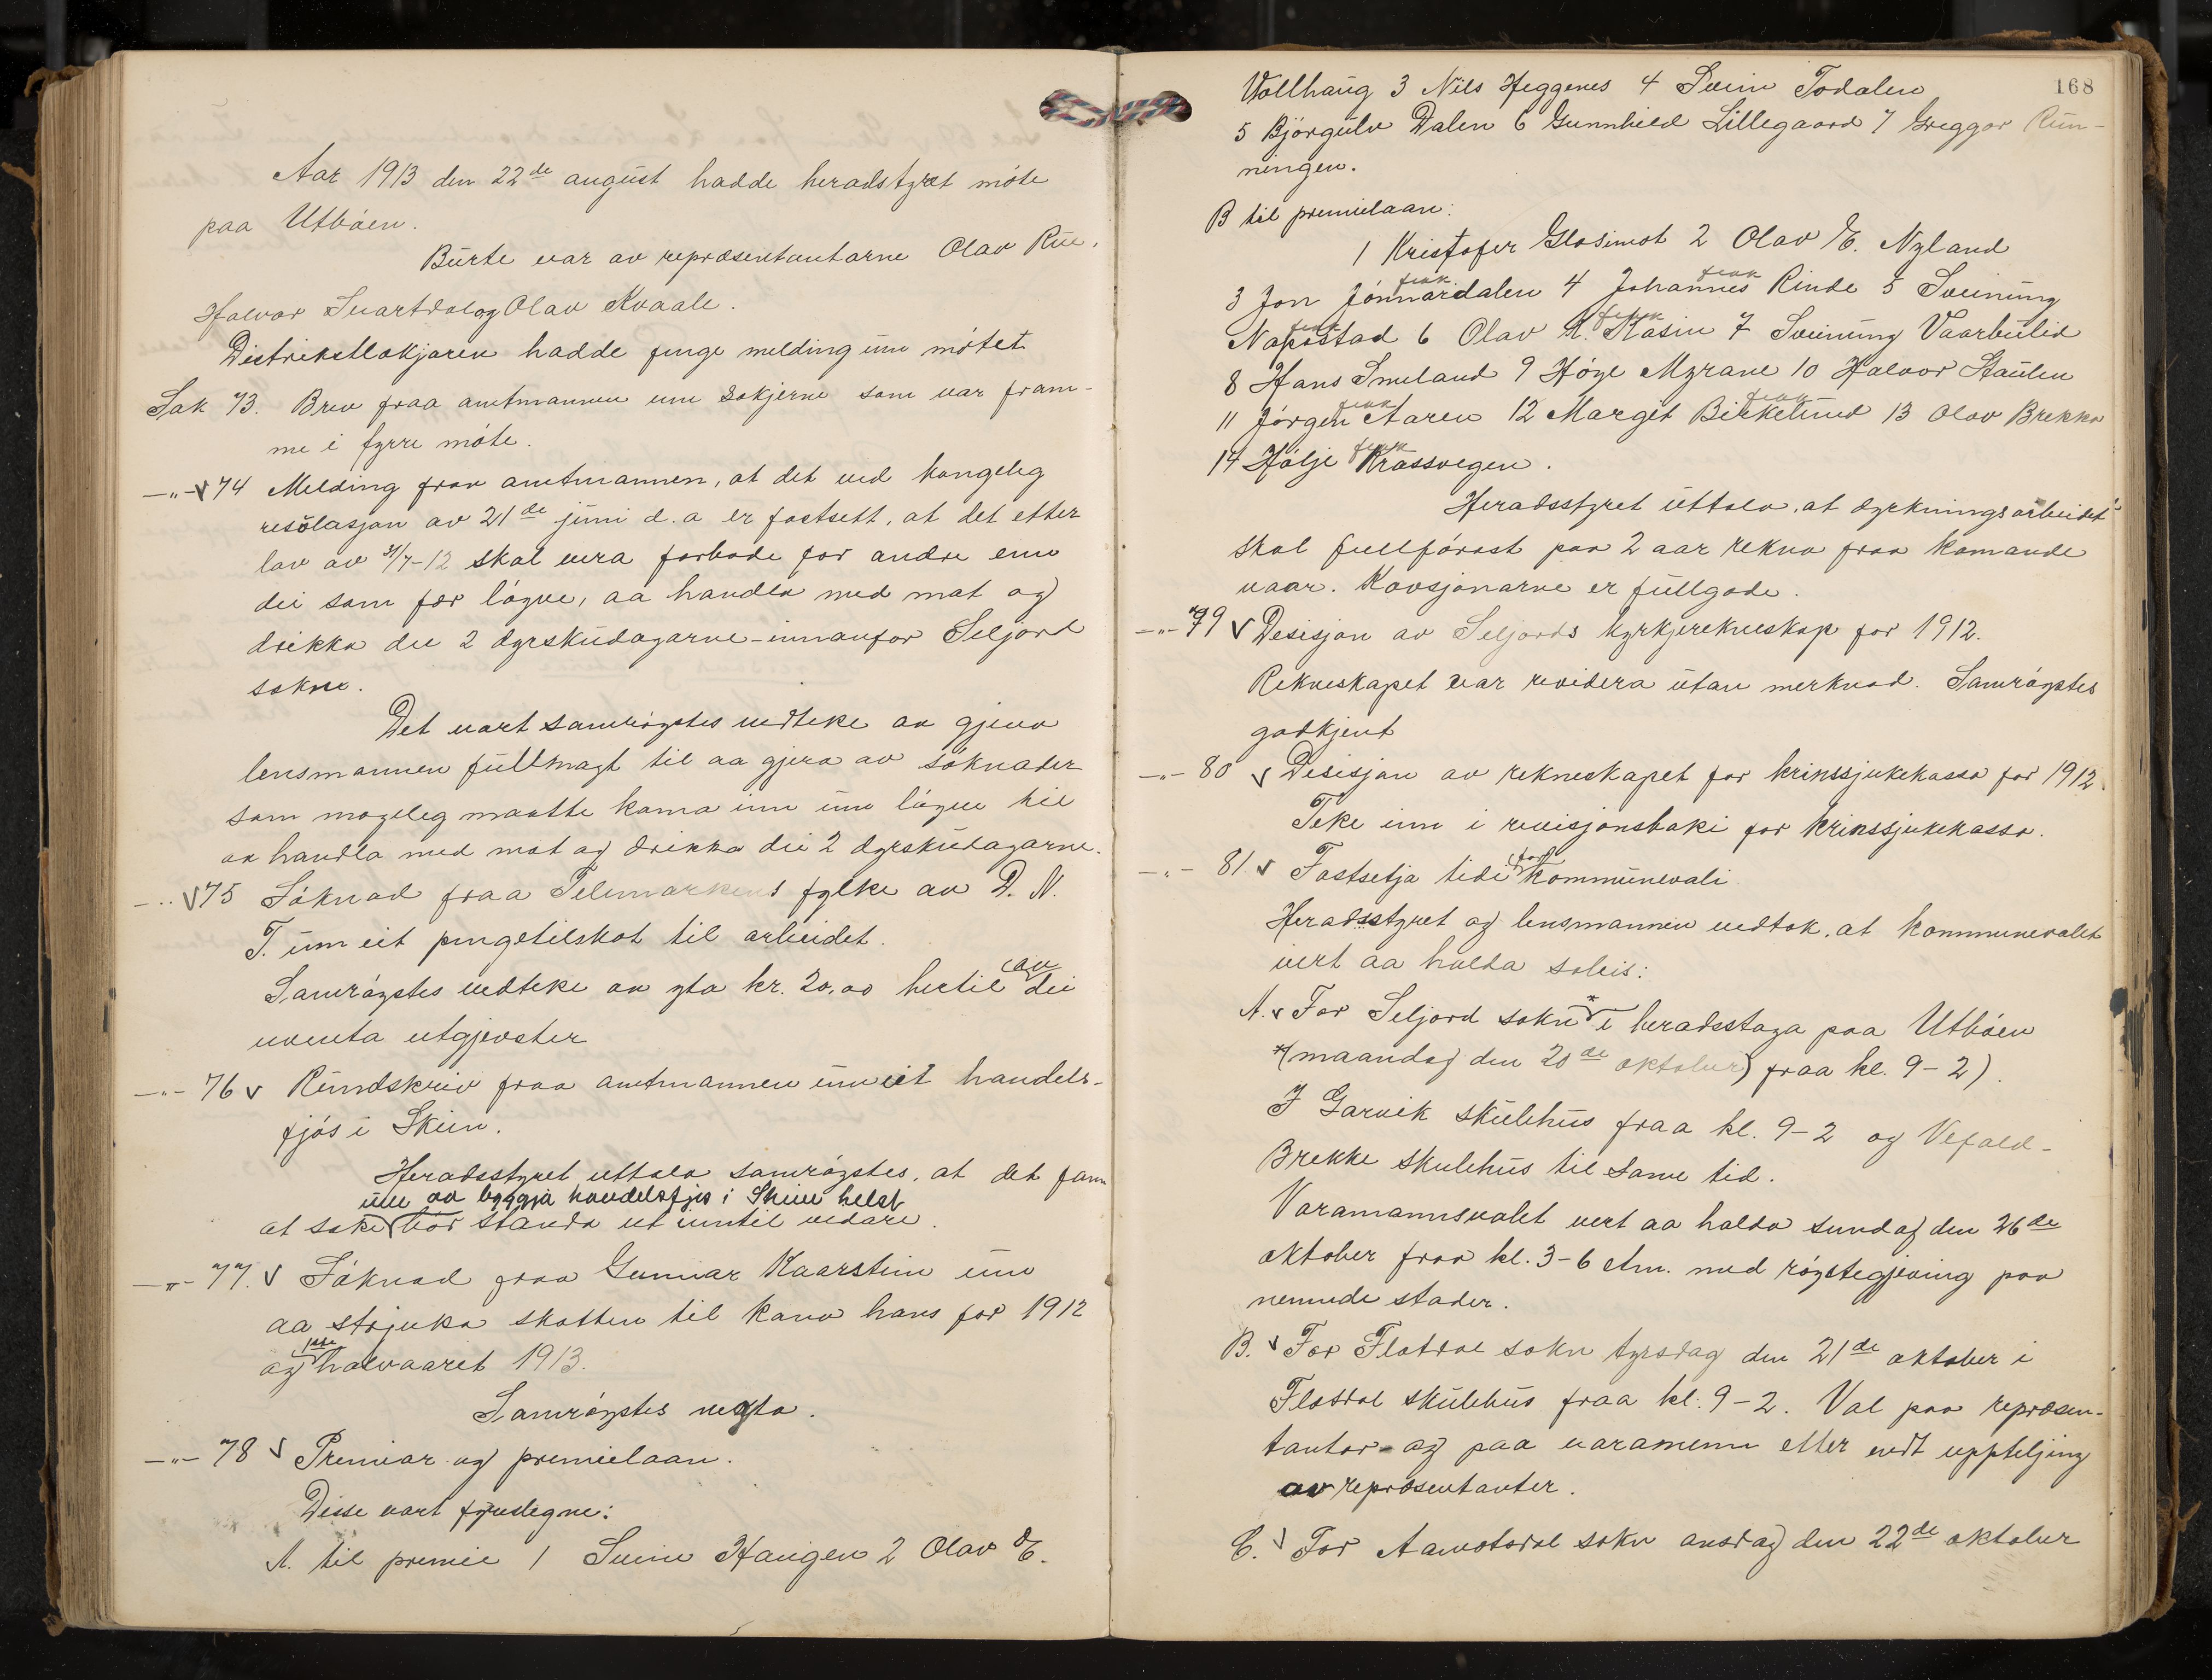 Aar 1913 den 22de august hadde heradstyret møte
paa Utbøen.
Burte var av repræsentantarne Olav Rue,
Halvor Svartdal og Olav Kvaale.
Distriktslækjaren hadde funge melding um møtet
Sak 73. Brev fraa amtmannen um sakjerne som var fram-
me i fyrre møte.
-"- v 74 Melding fraa amtmannen, at det ved kongeleg
resolasjon av 21de juni d.a er fastsett, at det etter
lov av 31/7-12 skal vera forbode for andre enn
dei som fær løgve, aa handla med mat og
drikka dei 2 dyrskudagarne innanfor Seljord
sokne.
Det vart samrøystes vedteke aa gjeva
lensmannen fullmagt til aa gjera av søknader
som mogeleg maatte koma inn um løgve til
aa handla med mat og drikka dei 2 dyrskudagarne.
-"- v 75 Søknad fraa Telemarkens fylke av D. N.
T. um eit pengetilskot til arbeidet.
Samrøystes vedteke aa yta kr. 20,00 hertil av dei
uventa utgjevster
-"- 76 v Rundskriv fraa amtmannen um eit handels-
fjøs i Skien.
Heradsstyret uttala samrøystes, at det fann
um aa byggja handelsfjøs i Skien helst
at sake bør standa ut inntil vidare.
-"- 77. v Søknad fraa Gunnar Kaarstein um
aa strjuka skatten til kona hans for 1912
og 1ste halvaaret 1913.
Samrøystes negta.
-"- 78 v Premiar og premielaan.
Disse vart fyreslegne:
A. til premie 1 Svein Haugen 2 Olav E.
168
Vollhaug 3 Nils Heggenes 4 Svein Todalen
5 Bjørgulv Dalen 6 Gunnhild Lillegaard 7 Greggor Run-
ningen.
B til premielaan:
1 Kristofer Glosimot 2 Olav E. Nyland
3 Jon Jønnardalen 4 Johannes Rinde 5 Sveinung
Napostad 6 Olav K. Kasin 7 Sveinung Vaarbulid
8 Hans Smeland 9 Høye Myrane 10 Halvor Staulen
11 Jørgen Aaren 12 Margit Birkelund 13 Olav Brekka
14 Hølje Krossvegen.
Heradsstyret uttala, at dyrkningsarbeidet
skal fullførast paa 2 aar rekna fraa komande
vaar. Kavsjonarne er fullgode.
-"- 79 v Desisjon av Seljords kyrkjerekneskap for 1912.
Rekneskapet var revidera utan merknad. Samrøystes
godkjent
-"- 80 v Desisjon av rekneskapet for krinssjukekassa for 1912.
Teke inn i revisjonsboki for krinssjukekassa.
-"- 81 v Fastsetja tidi for kommunevali
Heradsstyret og lensmannen vedtok, at kommunevalet
vert aa halda soleis:
A. v For Seljord sokn * i heradsstaga paa Utbøen
*(maandag den 20de oktober) fraa kl. 9-2).
I Garvik skulehus fraa kl. 9-2 og Vefald-
Brekke skulehus til same tid.
Varamannsvalet vert aa halda sundag den 26de
oktober fraa kl. 3-6 etm. med røystegjeving paa
nemnde stader.
B. v For Flatdal sokn tyrsdag den 21de oktober i
Flatdal skulehus fraa kl. 9-2. Val paa repræsen-
tantar og paa varamenn etter endt uppteljing
av repræsentanter.
C. v For Aamotsdal sokn onsdag den 22de oktober